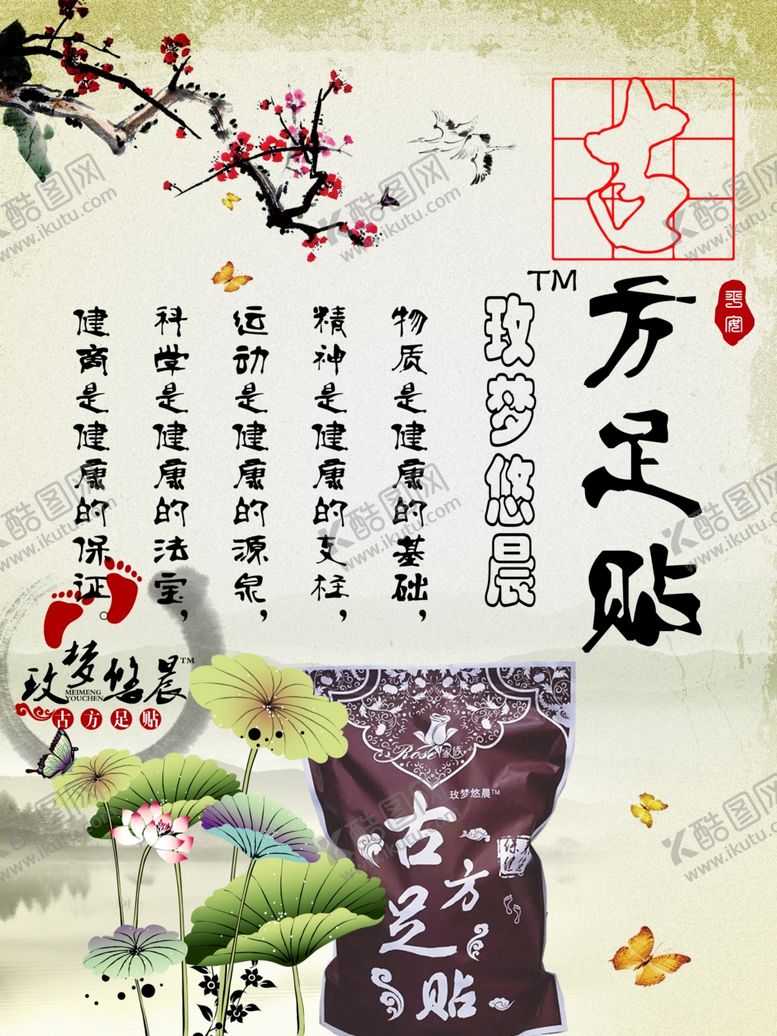 古
方足贴
平安
玫梦悠晨
TM
物质是健康的基础，
精神是健康的支柱，
运动是健康的源泉，
科学是健康的法宝，
健商是健康的保证。
玫梦悠晨TM
MEIMENG
YOUCHEN
古方足贴
Rose家族
玫梦悠晨TM
古方
足贴
K酷图网
www.ikutu.com